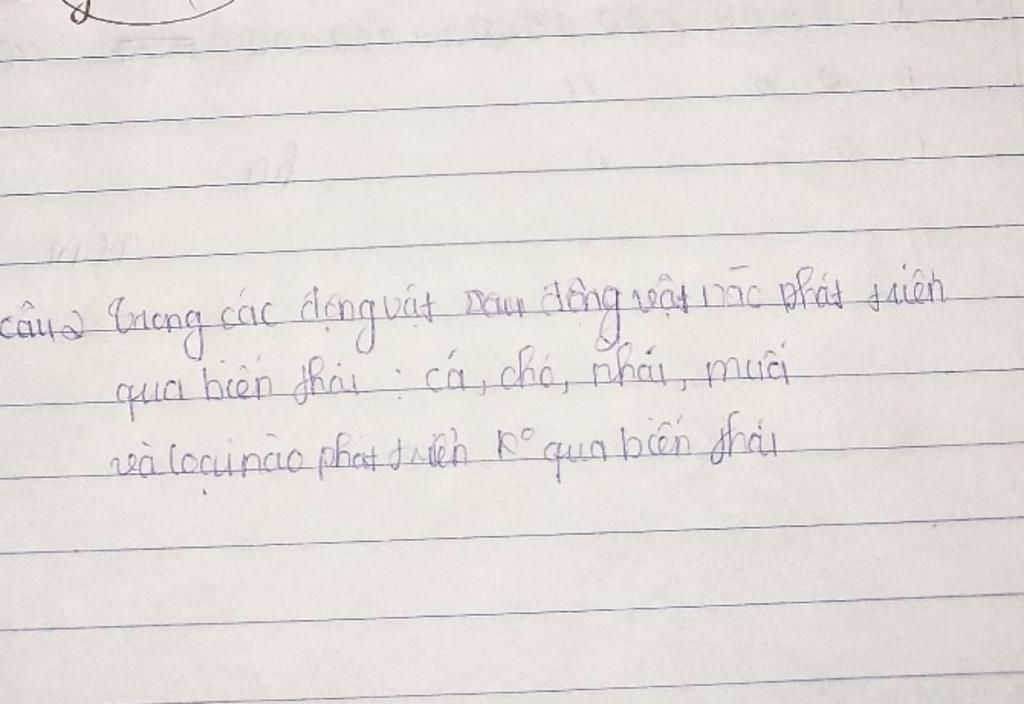 câu 2 Trong các động vật sau động vật nào phát triển
qua biến thái : cá, chó, nhái, muỗi
và loại nào phát triển K° qua biến thái